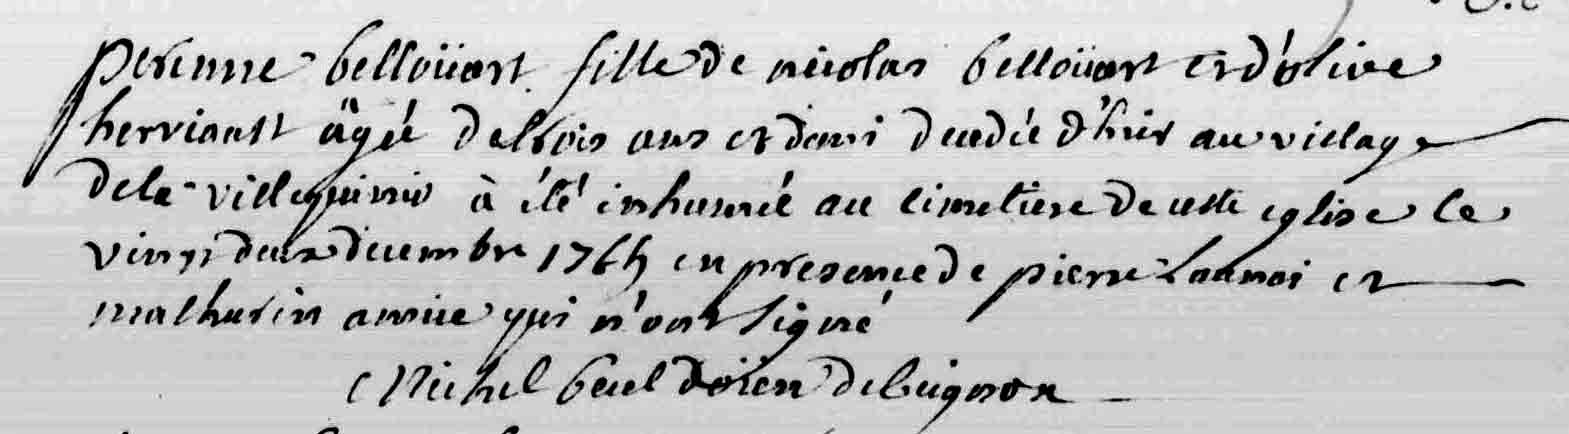 perinne belloüart fille de nicolas belloüart et d'olive
herviault âgée de trois ans et demi decedée d'hier au village
de la villequinio à été inhumée au cimetiere de ceste eglise le
vingt deux decembre 1764 en presence de pierre Launai et
mathurin amice qui n'ont signé
Michel beul doïen de beignon